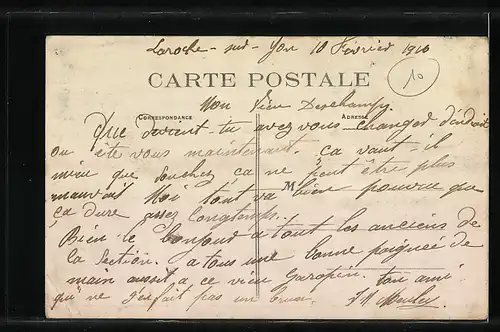 Laroche-sur-Yon 10 Février 1910
10
CARTE POSTALE
CORRESPONDANCE
ADRESSE
Mon Vieu Deschamps.
Que devient-tu avez vous changer d'endroit
ou ête vous maintenant. ça vaut-il
mieu que ça ne peut être plus
mauvait Moi tout va bien pourvue que
M
ça dure assez longtemps.
Bien le bonjour a tout les anciens de
la Section. a tous une bonne poignée de
main aussit a ce vieu ton ami
qui ne s'enfait pas un